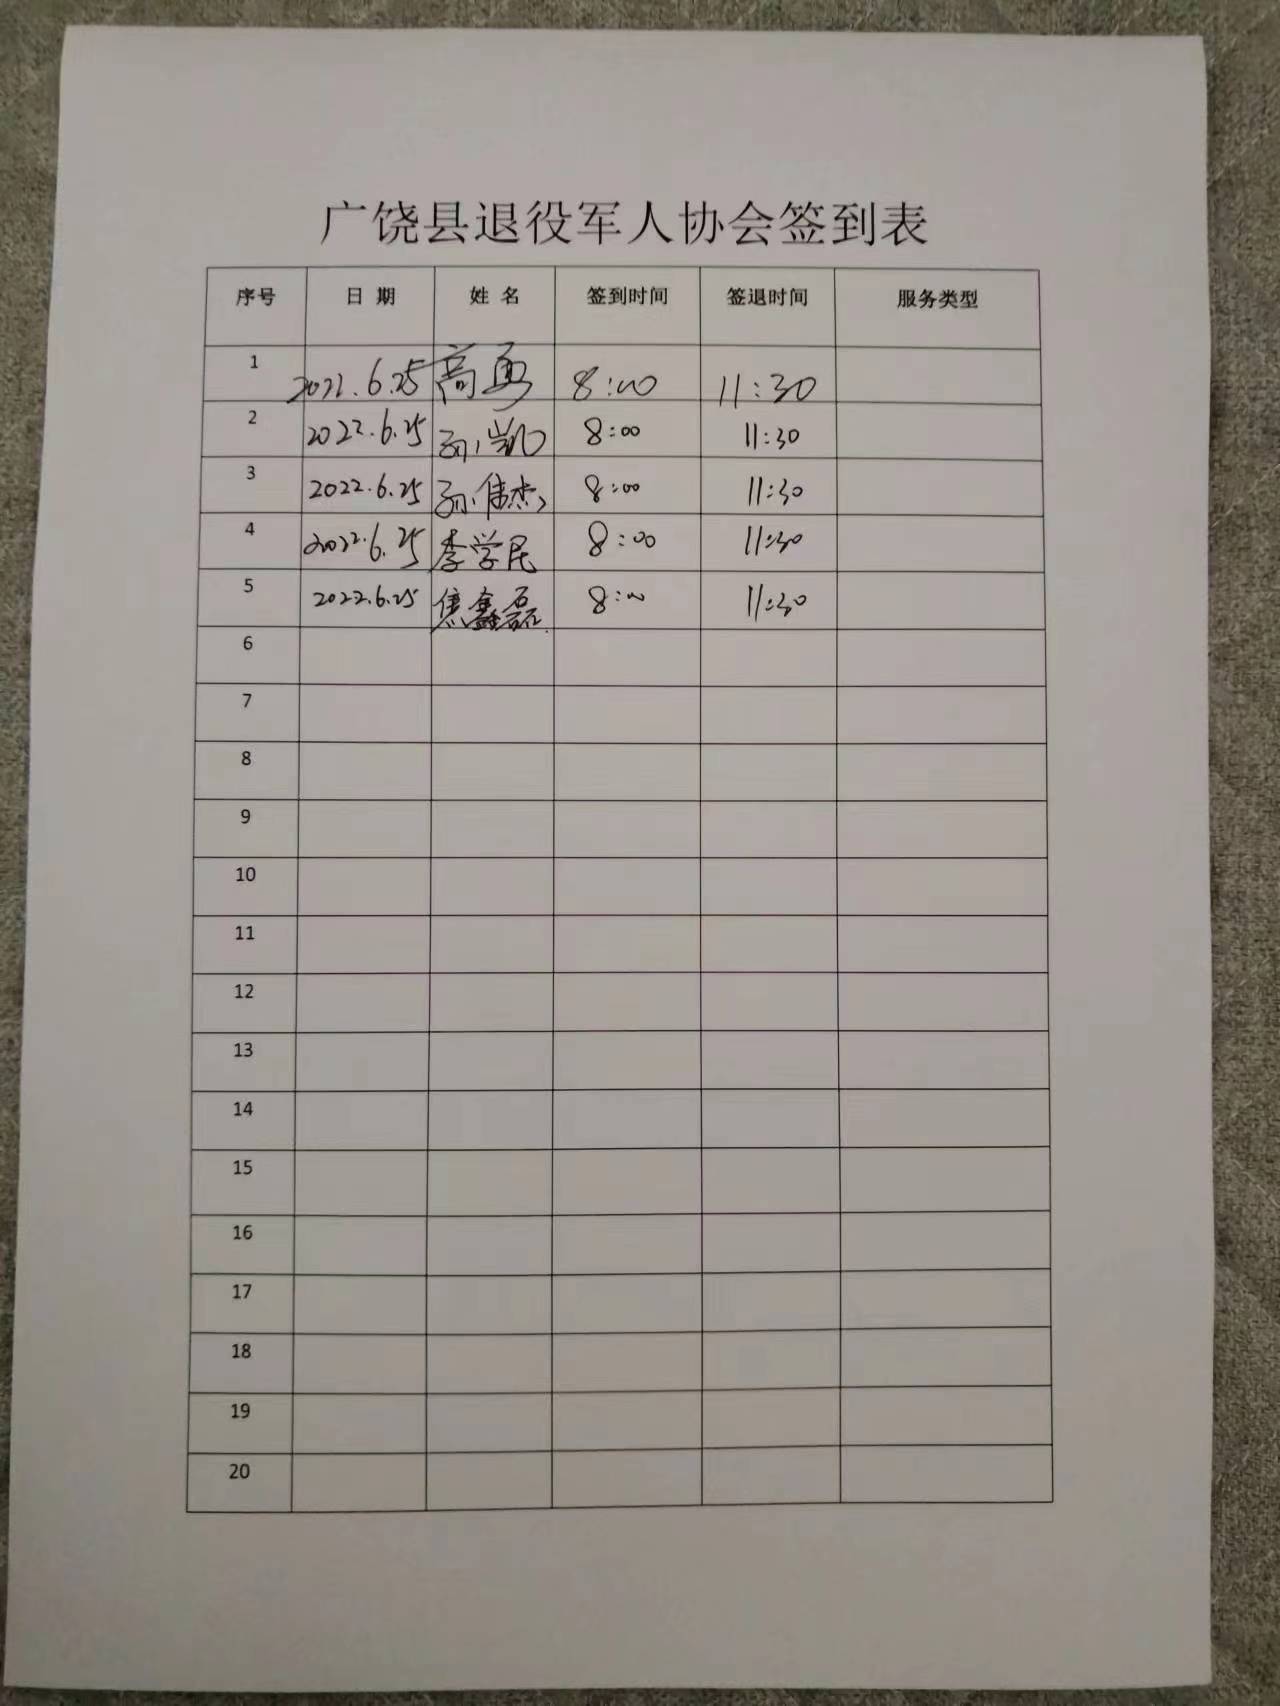 广饶县退役军人协会签到表
序号 日 期 姓 名 签到时间 签退时间 服务类型
1 2022.6.25 高勇 8:00 11:30
2 2022.6.25 孙凯 8:00 11:30
3 2022.6.25 孙伟杰 8:00 11:30
4 2022.6.25 李学民 8:00 11:30
5 2022.6.25 焦鑫磊 8:00 11:30
6
7
8
9
10
11
12
13
14
15
16
17
18
19
20